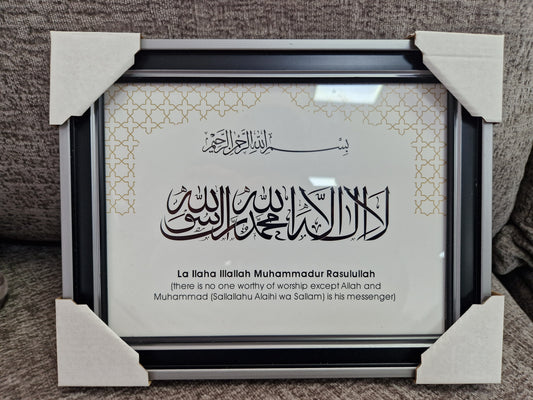 بِسْمِ اللهِ الرَّحْمٰنِ الرَّحِيْمِ
لا اله الا الله محمد رسول الله
La Ilaha Illallah Muhammadur Rasulullah
(there is no one worthy of worship except Allah and
Muhammad (Sallallahu Alaihi wa Sallam) is his messenger)